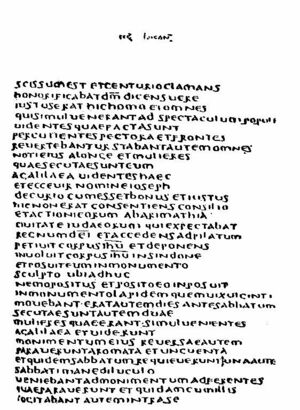 sec lucan
scissum est et centurio clamans
honorificabat dm̄ dicens uere
iustus erat hic homo et omnes
qui simul uenerant ad spectaculum populi
uidentes quae facta sunt
percutientes pectora et frontes
reuertebantur stabant autem omnes
noti eius a longe et mulieres
quae secutae sunt eum
a galilaea uidentes haec
et ecce uir nomine ioseph
decurio cum esset bonus et iustus
hic non erat consentiens consilio
et actioni eorum ab arimathia
ciuitate iudaeorum qui expectabat
regnum dei et accedens ad pilatum
petiuit corpus ihu et deponens
inuoluit corpus ihu in sindone
et posuit eum in monumento
sculpto ubi adhuc
nemo positus et posito eo inposuit
in monumento lapidem quem uix uiginti
mouebant erat autem dies ante sabbatum
secutae sunt autem duae
mulieres quae erant simul uenientes
a galilaea et uiderunt
monimentum eius reuersae autem
parauerunt aromata et unguenta
et quidem sabbatum requieuerunt
sabbati mane diluculo
ueniebant ad monimentum adferentes
quae parauerunt et quidam cum illis
cogitabant autem intra se